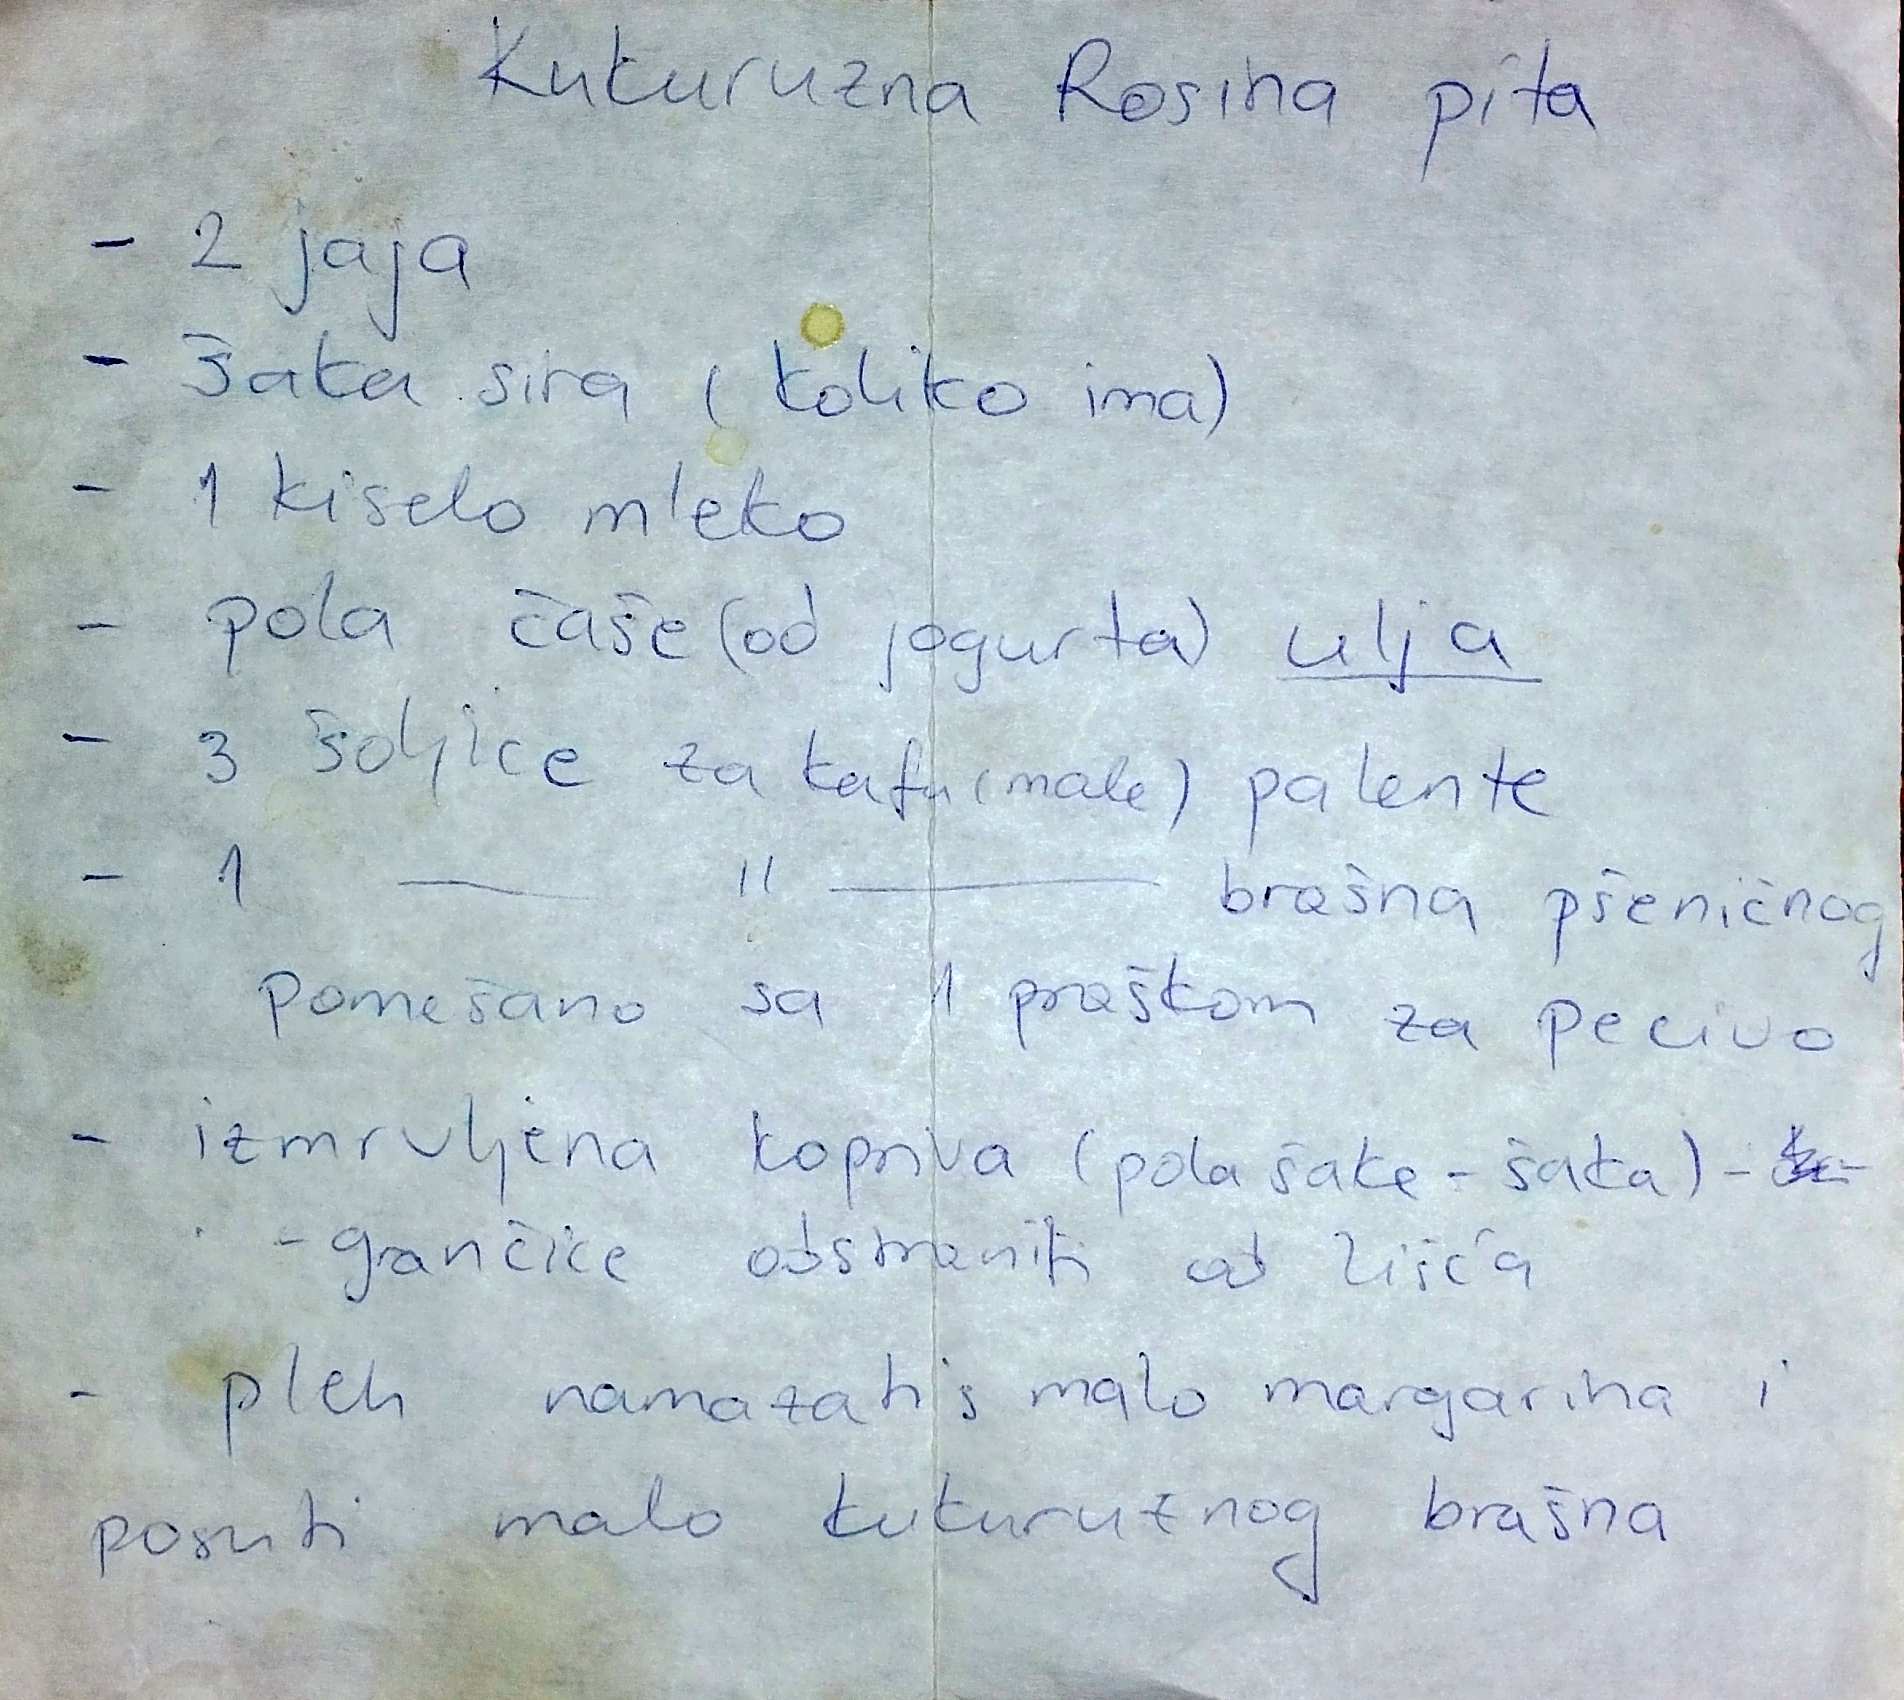 Kukuruzna Rosina pita
- 2 jaja
- šaka sira (koliko ima)
- 1 kiselo mleko
- pola čaše (od jogurta) ulja
- 3 šoljice za kafu (male) palente
- 1 —— " —— brašna pšeničnog
pomešano sa 1 praškom za pecivo
- izmrvljena kopriva (pola šake - šaka) -
- grančice odstraniti od lišća
- pleh namazati s malo margarina i
posuti malo kukuruznog brašna